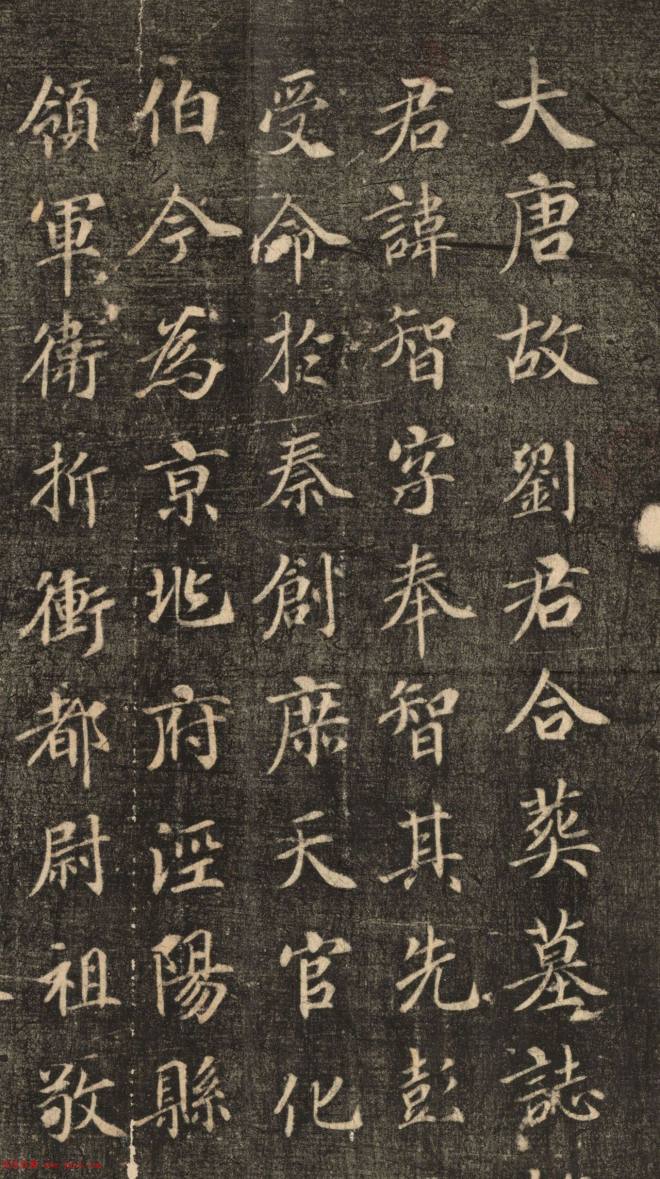 大唐故劉君合葬墓誌
君諱智字奉智其先彭
受命於秦創庶天官化
伯今為京兆府涇陽縣
領軍衛折衝都尉祖敬